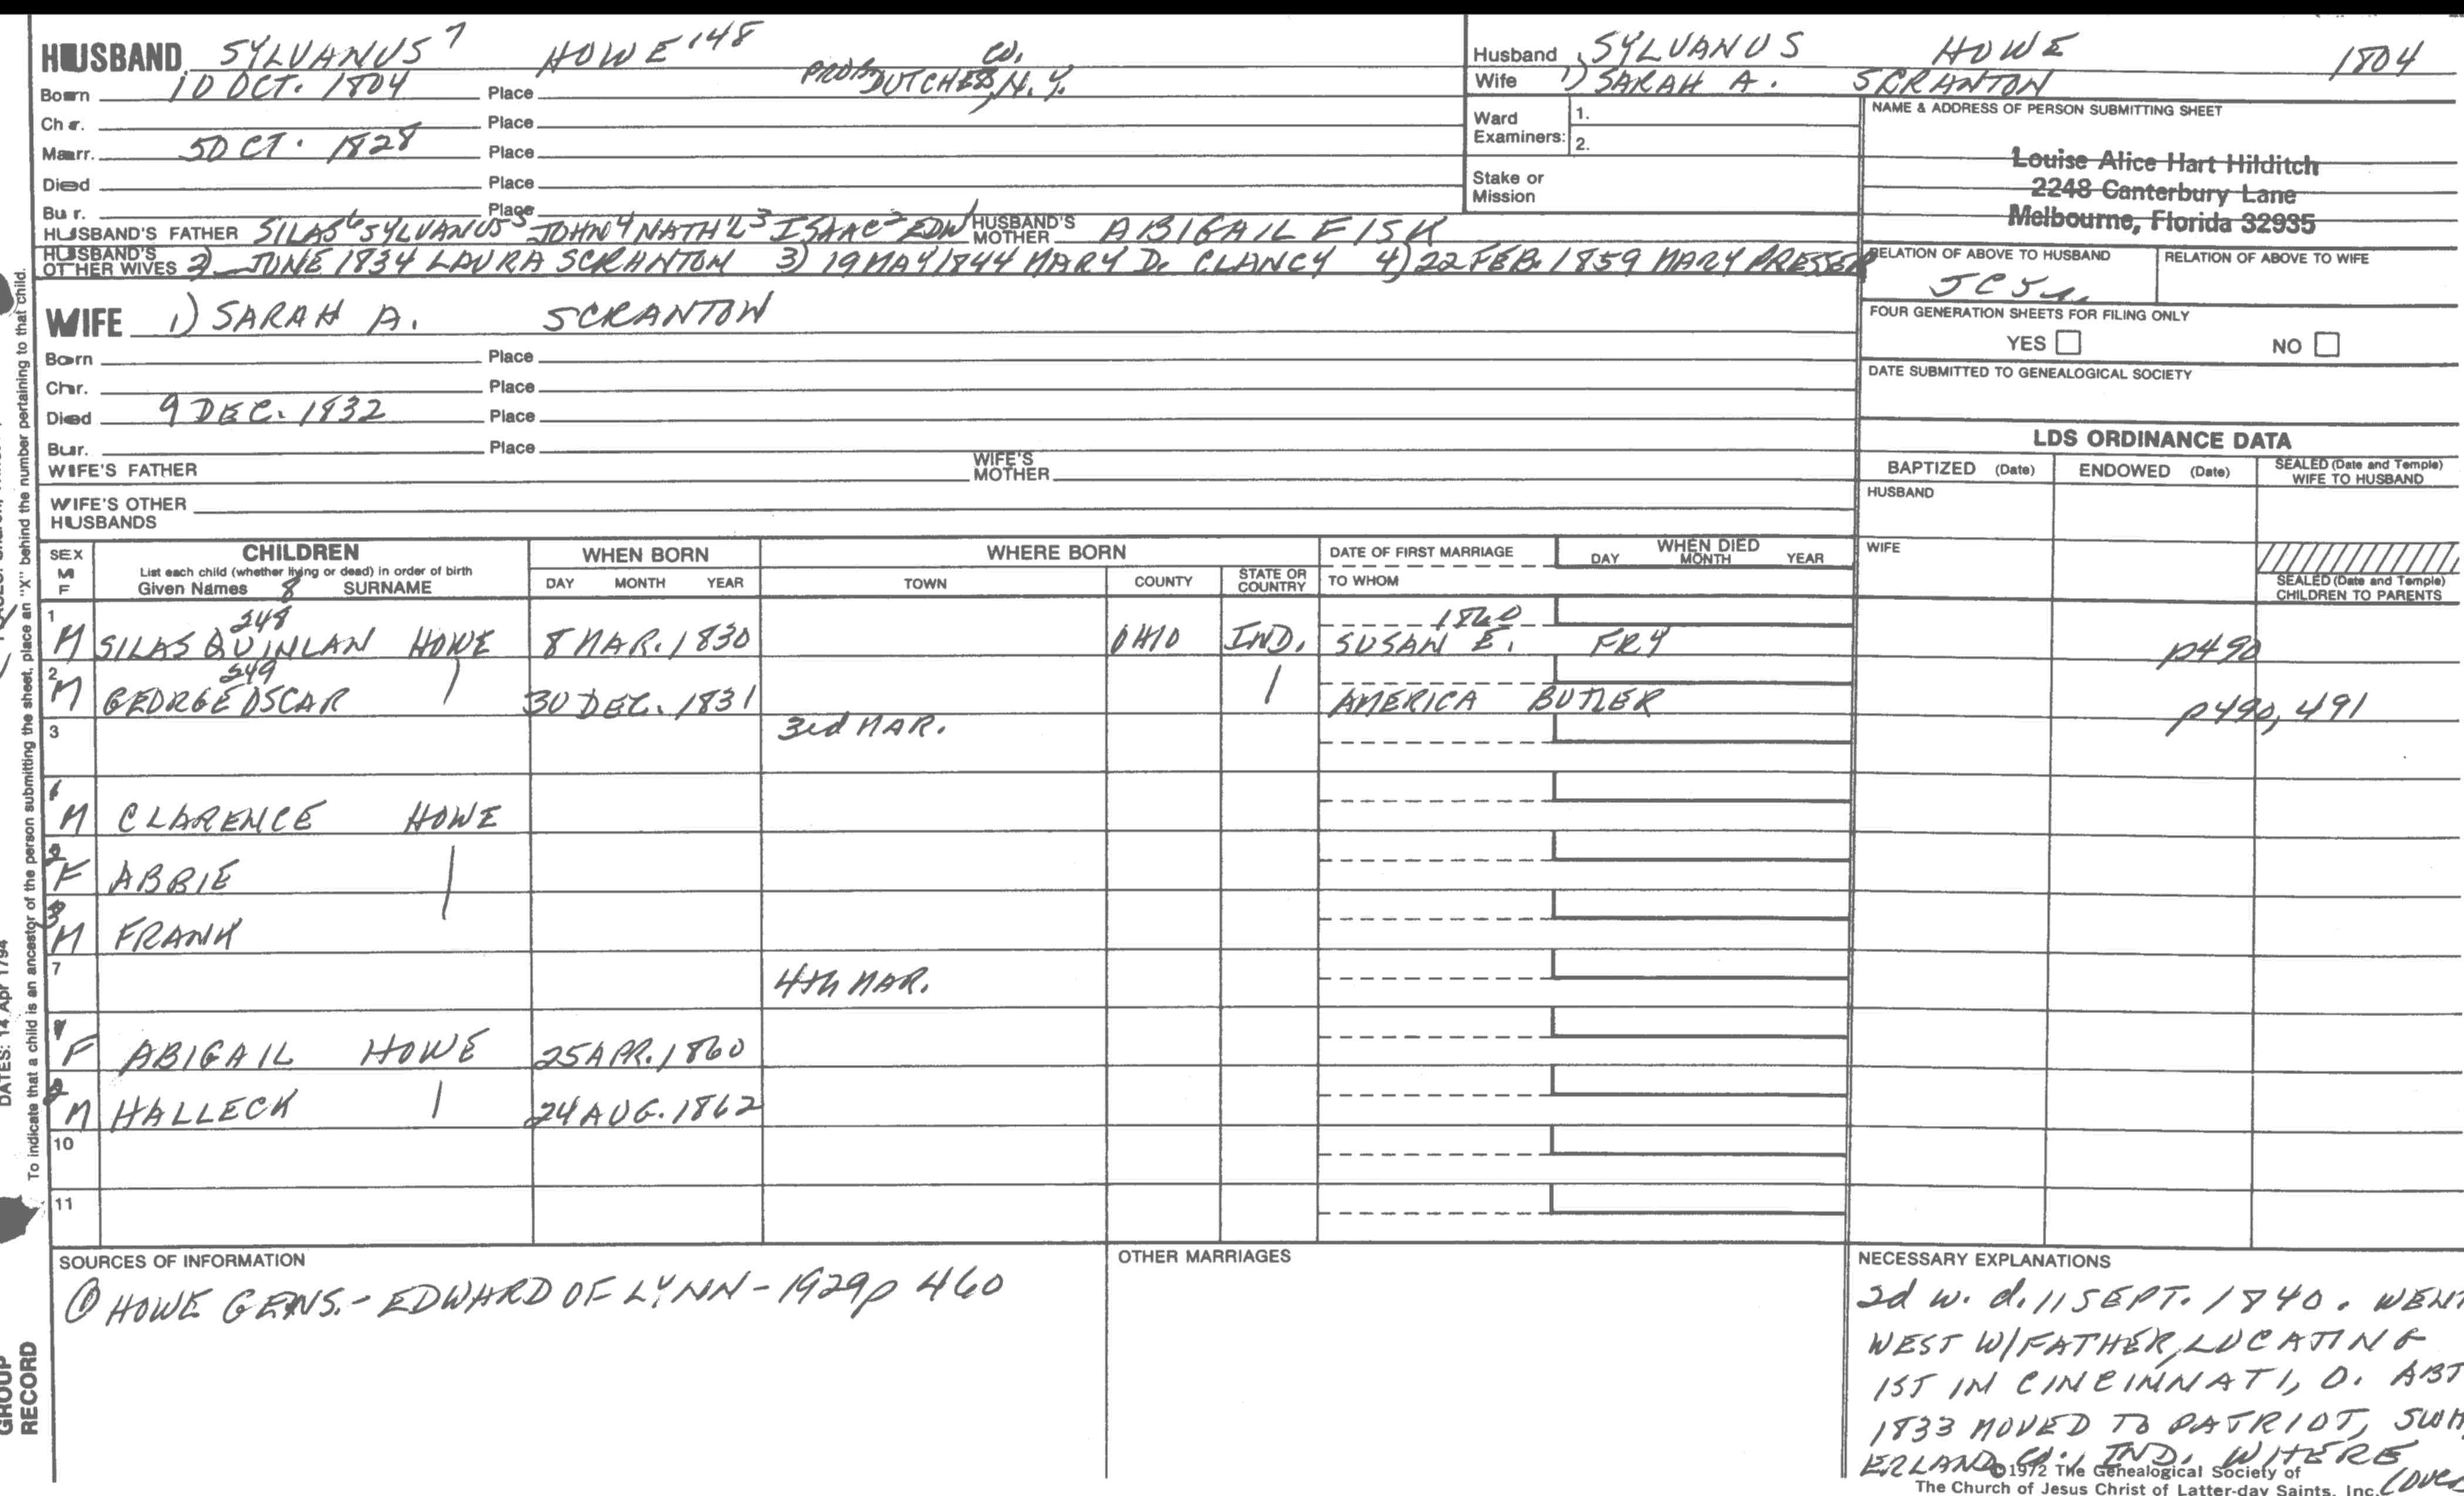 HUSBAND SYLVANUS 7 HOWE 148
Born 10 OCT. 1804 Place PROB. DUTCHESS CO., N.Y.
Chr. Place
Marr. 5 OCT. 1828 Place
Died Place
Bur. Place
HUSBAND'S FATHER SILAS 6 SYLVANUS 5 JOHN 4 NATH'L 3 ISAAC 2 EDW 1 HUSBAND'S MOTHER ABIGAIL FISK
HUSBAND'S OTHER WIVES 2) JUNE 1834 LAURA SCRANTON 3) 19 MAY 1844 MARY D. CLANCY 4) 22 FEB. 1859 MARY
WIFE 1) SARAH A. SCRANTON
Born Place
Chr. Place
Died 9 DEC. 1832 Place
Bur. Place
WIFE'S FATHER WIFE'S MOTHER
WIFE'S OTHER HUSBANDS
Husband SYLVANUS HOWE 1804
Wife 1) SARAH A. SCRANTON
Ward Examiners: 1.
2.
Stake or Mission
NAME & ADDRESS OF PERSON SUBMITTING SHEET
Louise Alice Hart Hilditch
2248 Canterbury Lane
Melbourne, Florida 32935
RELATION OF ABOVE TO HUSBAND RELATION OF ABOVE TO WIFE
FOUR GENERATION SHEETS FOR FILING ONLY
YES NO
DATE SUBMITTED TO GENEALOGICAL SOCIETY
LDS ORDINANCE DATA
BAPTIZED (Date) ENDOWED (Date) SEALED (Date and Temple) WIFE TO HUSBAND
HUSBAND
WIFE
SEALED (Date and Temple) CHILDREN TO PARENTS
SEX M F CHILDREN WHEN BORN WHERE BORN DATE OF FIRST MARRIAGE WHEN DIED
List each child (whether living or dead) in order of birth
Given Names 8 SURNAME DAY MONTH YEAR TOWN COUNTY STATE OR COUNTRY TO WHOM DAY MONTH YEAR
1 248 1860
M SILAS QUINLAN HOWE 8 MAR. 1830 OHIO IND. SUSAN E. FRY p490
2 249
M GEORGE OSCAR 30 DEC. 1831 AMERICA BUTLER p490, 491
3 3rd MAR.
1 M CLARENCE HOWE
2 F ABBIE
3 M FRANK
7 4th MAR.
1 F ABIGAIL HOWE 25 APR. 1860
2 M HALLECK 24 AUG. 1862
10
11
SOURCES OF INFORMATION
① HOWE GENS. - EDWARD OF LYNN - 1929 p 460
OTHER MARRIAGES
NECESSARY EXPLANATIONS
2d w. d. 11 SEPT. 1840. WENT
WEST W/FATHER, LOCATING
1ST IN CINCINNATI, O. ABT
1833 MOVED TO PATRIOT,
ERLAND CO., IND. WHERE
©1972 The Genealogical Society of
The Church of Jesus Christ of Latter-day Saints, Inc.
To indicate that a child is an ancestor of the person submitting the sheet, place an "X" behind the number pertaining to that child.
DATES: 14 Apr 1794
GROUP
RECORD